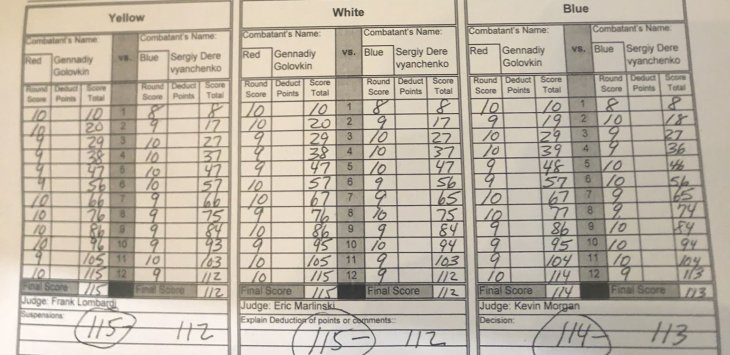 Yellow
Combatant's Name: Combatant's Name:
Red Gennadiy Golovkin vs. Blue Sergiy Dere vyanchenko
Round Score Deduct Points Score Total Round Score Deduct Points Score Total
10 10 1 8 8
10 20 2 9 17
9 29 3 10 27
9 38 4 10 37
9 47 5 10 47
9 56 6 10 57
10 66 7 9 66
10 76 8 9 75
10 86 9 9 84
10 96 10 9 93
105 11 10 103
10 115 12 9 112
Final Score 115 Final Score 112
Judge: Frank Lombardi
Suspensions:
115 112
White
Combatant's Name: Combatant's Name:
Red Gennadiy Golovkin vs. Blue Sergiy Dere vyanchenko
Round Score Deduct Points Score Total Round Score Deduct Points Score Total
10 10 1 8 8
10 20 2 9 17
9 29 3 10 27
9 38 4 10 37
9 47 5 10 47
10 57 6 9 56
10 67 7 9 65
9 76 8 10 75
10 86 9 9 84
9 95 10 10 94
10 105 11 9 103
10 115 12 9 112
Final Score 115 Final Score 112
Judge: Eric Marlinski
Explain Deduction of points or comments:
115- 112
Blue
Combatant's Name: Combatant's Name:
Red Gennadiy Golovkin vs. Blue Sergiy Dere vyanchenko
Round Score Deduct Points Score Total Round Score Deduct Points Score Total
10 10 1 8 8
9 19 2 10 18
10 29 3 9 27
10 39 4 9 36
9 48 5 10 46
9 57 6 10 56
10 67 7 9 65
10 77 8 9 74
9 86 9 10 84
9 95 10 10 94
9 104 11 10 104
10 114 12 9 113
Final Score 114 Final Score 113
Judge: Kevin Morgan
Decision:
114- 113